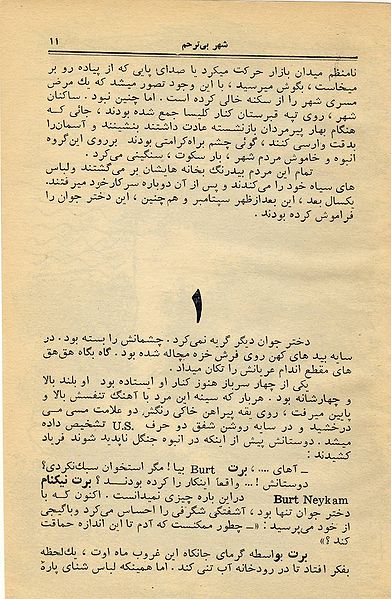 شهر بی‌ترحم
۱۱
نامنظم میدان بازار حرکت میکرد با صدای پایی که از پیاده رو بر
میخاست، بگوش میرسید، با این وجود تصور میشد که یك مرض
مسری شهر را از سکنه خالی کرده است. اما چنین نبود. ساکنان
شهر، روی تپه قبرستان کنار کلیسا جمع شده بودند، جائی که
هنگام بهار پیرمردان بازنشسته عادت داشتند بنشینند و آسمان‌را
بدقت وارسی کنند، گوئی چشم براه کرامتی بودند بر‌روی این‌گروه
انبوه و خاموش مردم شهر، بار سکوت، سنگینی می‌کرد.
تمام این مردم بیدرنگ بخانه هایشان بر می‌گشتند ولباس
های سیاه خود را می‌کندند و پس از آن دوباره سرکار خود میرفتند.
یکسال بعد، این بعدازظهر سپتامبر و هم‌چنین، این دختر جوان را
فراموش کرده بودند.
۱
دختر جوان دیگر گریه نمی‌کرد. چشمانش را بسته بود. در
سایه بید های کهن روی فرش خزه مچاله شده بود. گاه بگاه هق‌هق
های مقطع اندام عریانش را تکان میداد.
یکی از چهار سرباز هنوز کنار او ایستاده بود او بلند بالا
و چهارشانه بود. هربار که سینه این مرد با آهنگ تنفسش بالا و
پایین میرفت، روی یقه پیراهن خاکی رنگش دو علامت مسی می
درخشید و در سایه روشن شفق دو حرف U.S. تشخیص داده
میشد. دوستانش پیش از اینکه در انبوه جنگل ناپدید شوند فریاد
کشیدند:
ـ آهای ....، برت Burt بیا! مگر استخوان سبك‌نکردی؟
دوستانش! ... واقعا اینکار را کرده بودنــد؟ برت نیکنام
Burt Neykam دراین باره چیزی نمیدانست. اکنون که با
دختر جوان تنها بود، آشفتگی شگرفی را احساس می‌کرد وباگیجی
از خود می‌پرسید: «ـ چطور ممکنست که آدم تا این اندازه حماقت
کند؟»
برت بواسطه گرمای جانکاه این غروب ماه اوت، یك‌لحظه
بفکر افتاد تا در رودخانه آب تنی کند. اما همینکه لباس شنای پاره